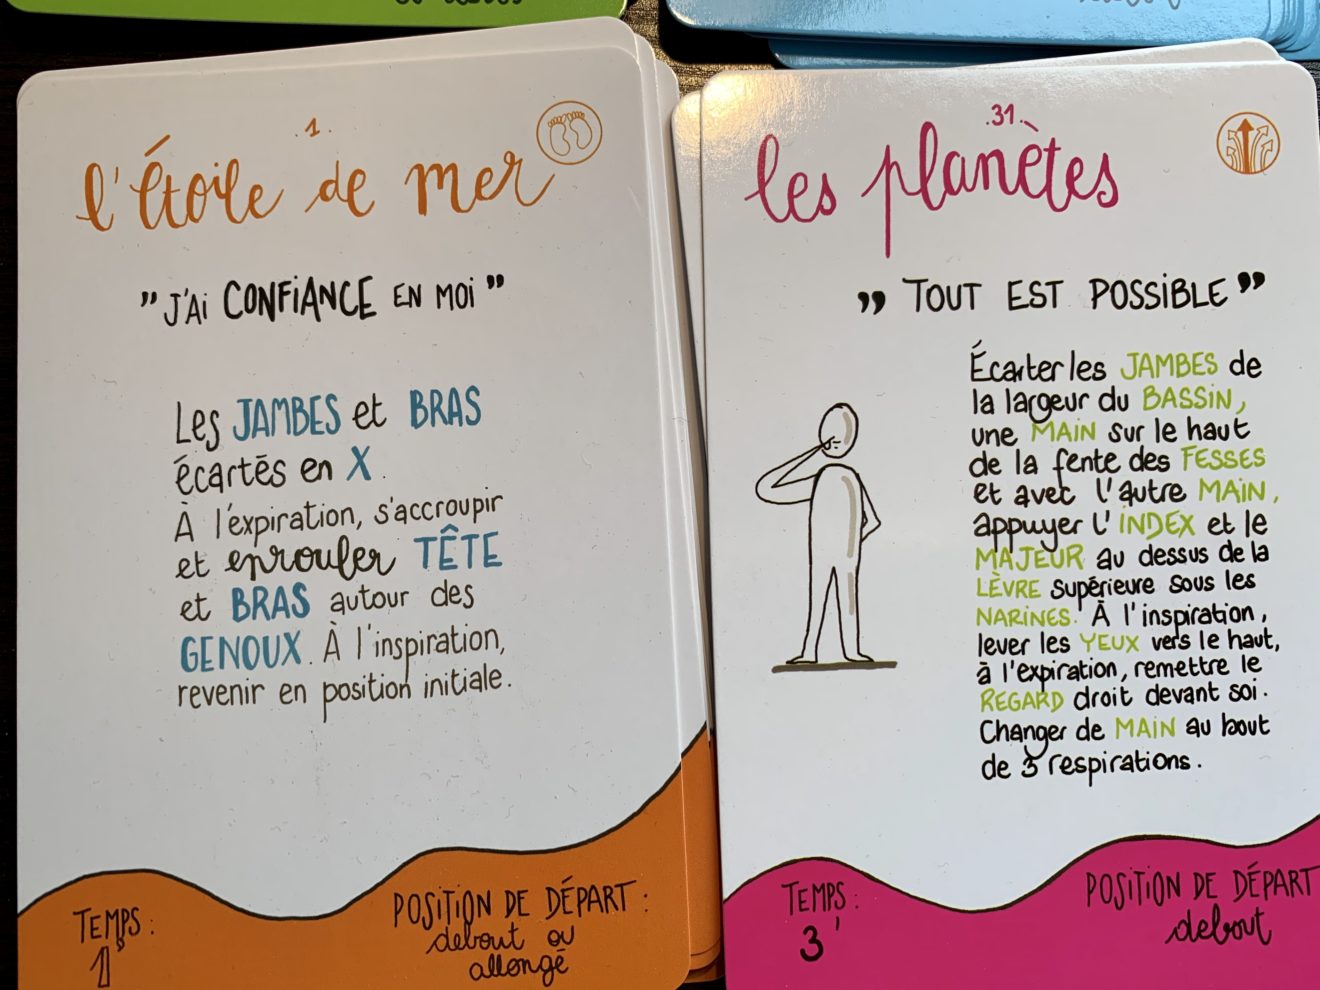 .1.
l'étoile de mer
" J'Ai CONFiANCE EN MOi "
Les JAMBES et BRAS
écartés en X.
À l'expiration, s'accroupir
et enrouler TÊTE
et BRAS autour des
GENOUX. À l'inspiration,
revenir en position initiale.
TEMPS :
1'
POSiTiON DE DÉPART :
debout ou
allongé
.31.
les planètes
" TOUT EST POSSiBLE "
Écarter les JAMBES de
la largeur du BASSiN,
une MAiN sur le haut
de la fente des FESSES
et avec l'autre MAiN,
appuyer l'iNDEX et le
MAJEUR au dessus de la
LÈVRE supérieure sous les
NARiNES. À l'inspiration,
lever les YEUX vers le haut,
à l'expiration, remettre le
REGARD droit devant soi.
Changer de MAiN au bout
de 3 respirations.
TEMPS :
3'
POSiTiON DE DÉPART
debout